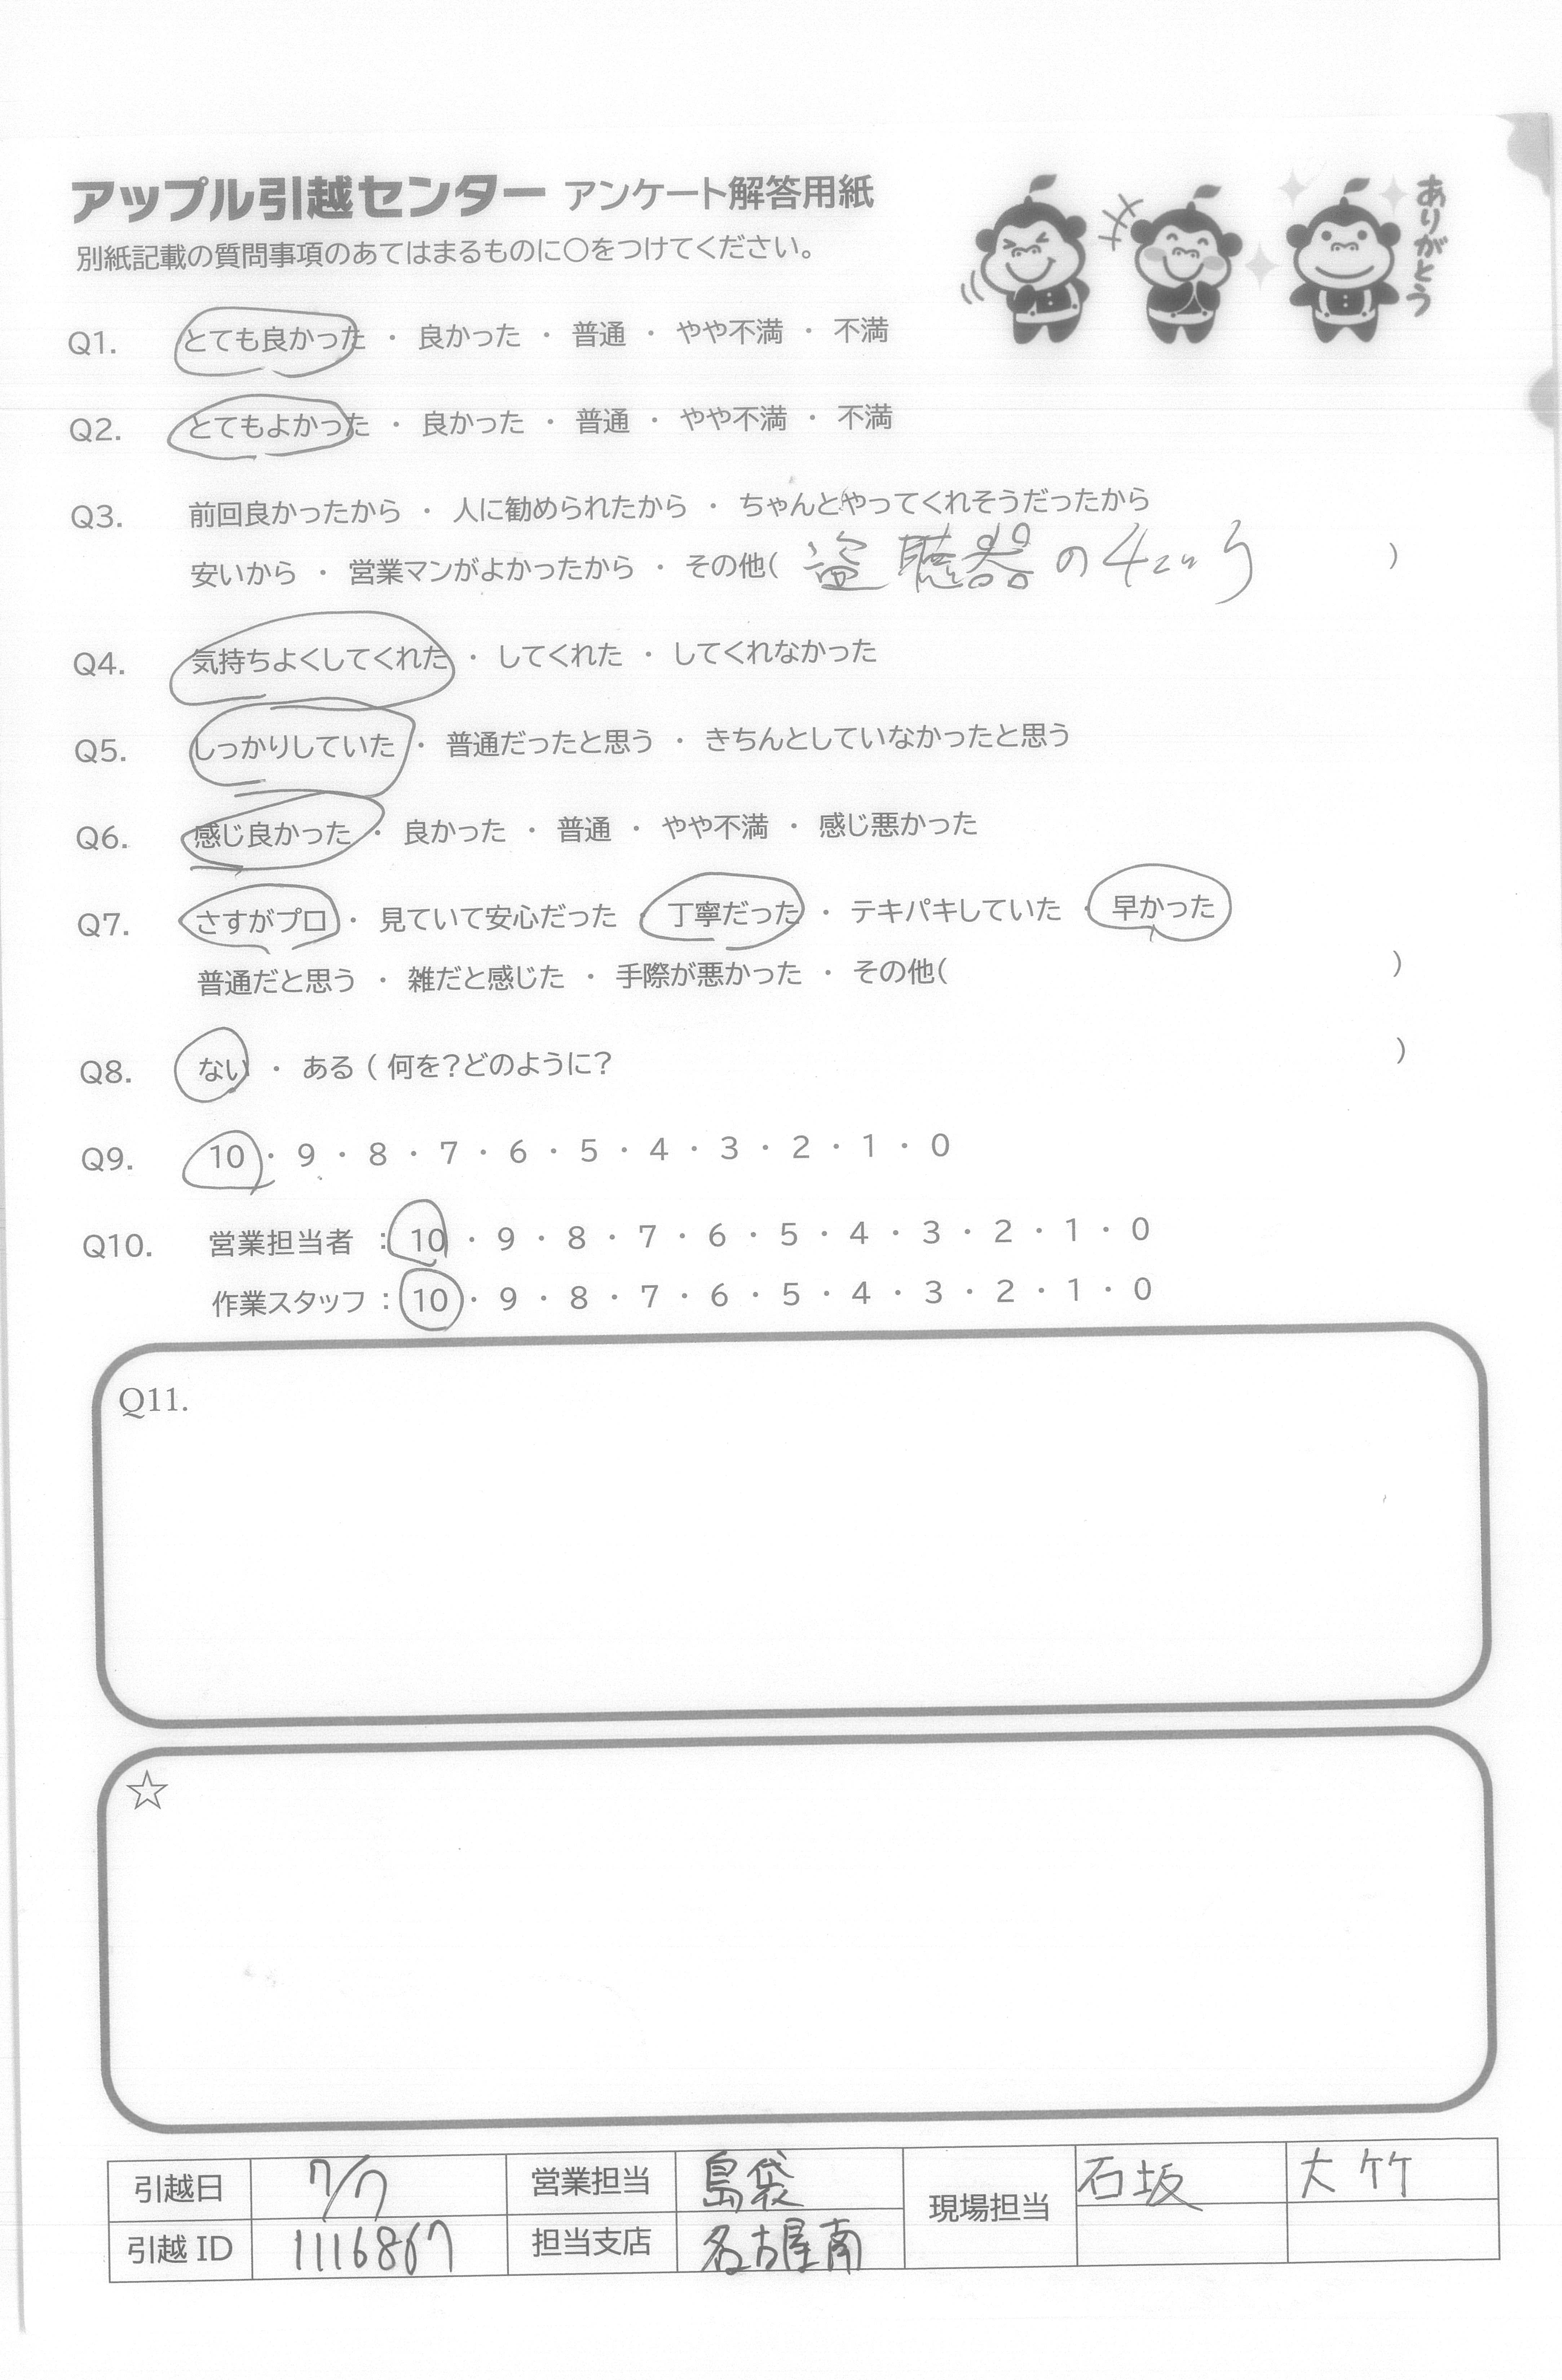 アップル引越センター アンケート解答用紙
別紙記載の質問事項のあてはまるものに〇をつけてください。
ありがとう
Q1. とても良かった ・ 良かった ・ 普通 ・ やや不満 ・ 不満
Q2. とてもよかった ・ 良かった ・ 普通 ・ やや不満 ・ 不満
Q3. 前回良かったから ・ 人に勧められたから ・ ちゃんとやってくれそうだったから
安いから ・ 営業マンがよかったから ・ その他( 盗聴器の )
Q4. 気持ちよくしてくれた ・ してくれた ・ してくれなかった
Q5. しっかりしていた ・ 普通だったと思う ・ きちんとしていなかったと思う
Q6. 感じ良かった ・ 良かった ・ 普通 ・ やや不満 ・ 感じ悪かった
Q7. さすがプロ ・ 見ていて安心だった ・ 丁寧だった ・ テキパキしていた ・ 早かった
普通だと思う ・ 雑だと感じた ・ 手際が悪かった ・ その他( )
Q8. ない ・ ある ( 何を?どのように? )
Q9. 10 ・ 9 ・ 8 ・ 7 ・ 6 ・ 5 ・ 4 ・ 3 ・ 2 ・ 1 ・ 0
Q10. 営業担当者 : 10 ・ 9 ・ 8 ・ 7 ・ 6 ・ 5 ・ 4 ・ 3 ・ 2 ・ 1 ・ 0
作業スタッフ : 10 ・ 9 ・ 8 ・ 7 ・ 6 ・ 5 ・ 4 ・ 3 ・ 2 ・ 1 ・ 0
Q11.
☆
引越日 7/7 営業担当 島袋 現場担当 石坂 大竹
引越 ID 1116867 担当支店 名古屋南